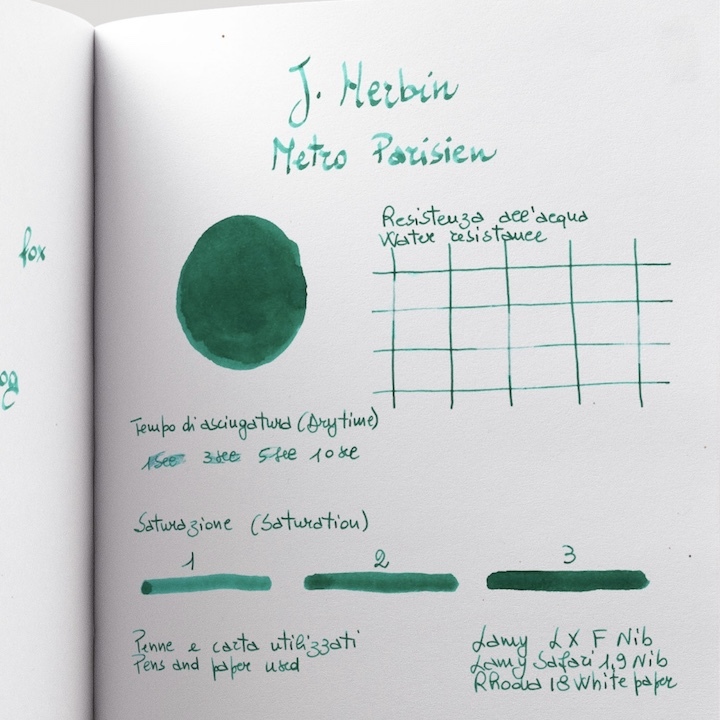 J. Herbin
Metro Parisien
fox
og
Resistenza all'acqua
Water resistance
Tempo di asciugatura (Drytime)
1 sec 3 sec 5 sec 10 sec
Saturazione (Saturation)
1 2 3
Penne e carta utilizzati
Pens and paper used
Lamy LX F Nib
Lamy Safari 1,9 Nib
Rhodia 18 White paper